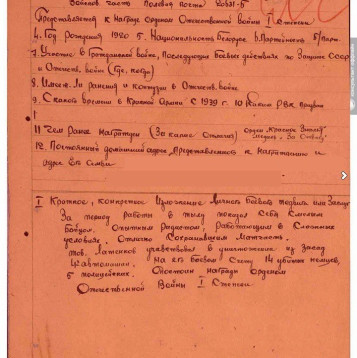 Войсков. часть Полевая почта 20831-Б
Представляется к награде орденом Отечественной войны I степени
4. Год рождения 1920 5. Национальность белорус 6. Партийность б/парт.
7. Участие в Гражданской войне, последующих боевых действиях по защите СССР
и Отечеств. войне (где, когда)
8. Имеет ли ранения и контузии в Отечеств. войне
9. С какого времени в Красной Армии С 1939 г. 10 Каким РВК призван
11 Чем ранее награжден (за какие отличия) орден "Красное Знамя"
12. Постоянный домашний адрес представляемого к награждению и
адрес его семьи
I Краткое, конкретное изложение личного боевого подвига или заслуг
За период работы в тылу показал себя смелым
бойцом. Опытным радистом, работающим в сложных
условиях. Отлично сохранившем матчасть.
тов. участвовал в уничтожении
на его боевом счету 14 убитых немцев,
5 полицейских. Достоин награды орденом
Отечественной Войны I степени.